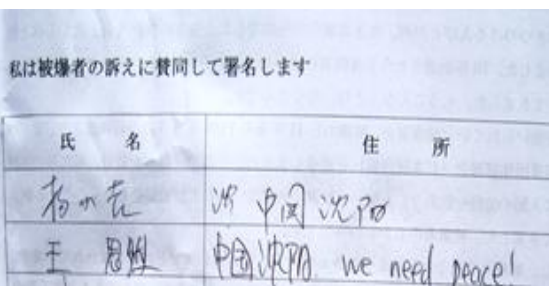 私は被爆者の訴えに賛同して署名します
氏 名 住 所
中国 沈阳
王 中国沈阳. we need peace!